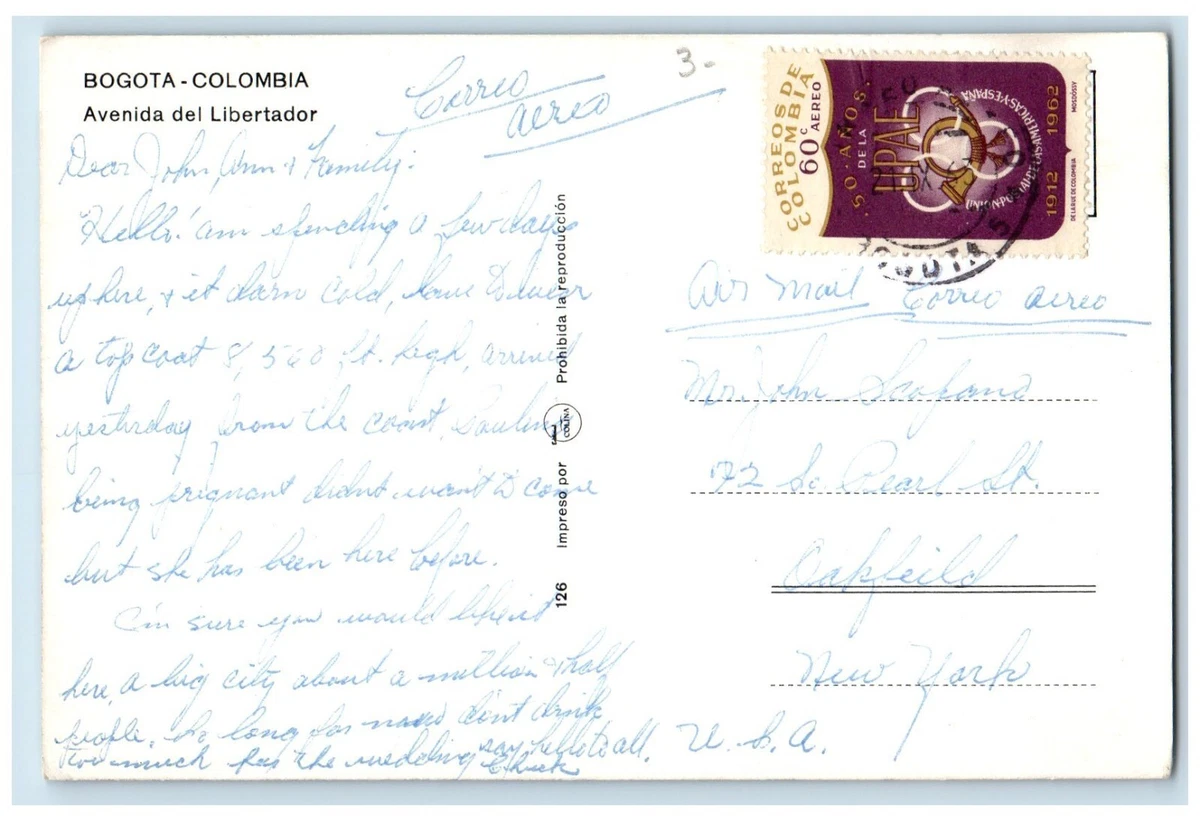 BOGOTA - COLOMBIA
Avenida del Libertador
Correo
aereo
3-
Dear John, Ann & Family:
Hello! am spending a few days
up here, & it darn cold, have to wear
a top coat 8,560 ft. high, arrived
yesterday from the coast, Pauline
being pregnant didnt want to come
but she has been here before.
I'm sure you would like it
here, a big city about a million & half
people. So long for now dont drink
too much for the wedding say hello to all.
Chuck
126 Impreso por COLINA Prohibida la reproducción
CORREOS DE
COLOMBIA
60c AEREO
50 AÑOS
DE LA
UPAE
UNION POSTAL DE LAS AMERICAS Y ESPAÑA
1912 1962
DE LA RUE DE COLOMBIA
BOGOTA
Air Mail Correo aereo
Mr. John
72 So Pearl St.
Oakfeild
New York
U.S.A.